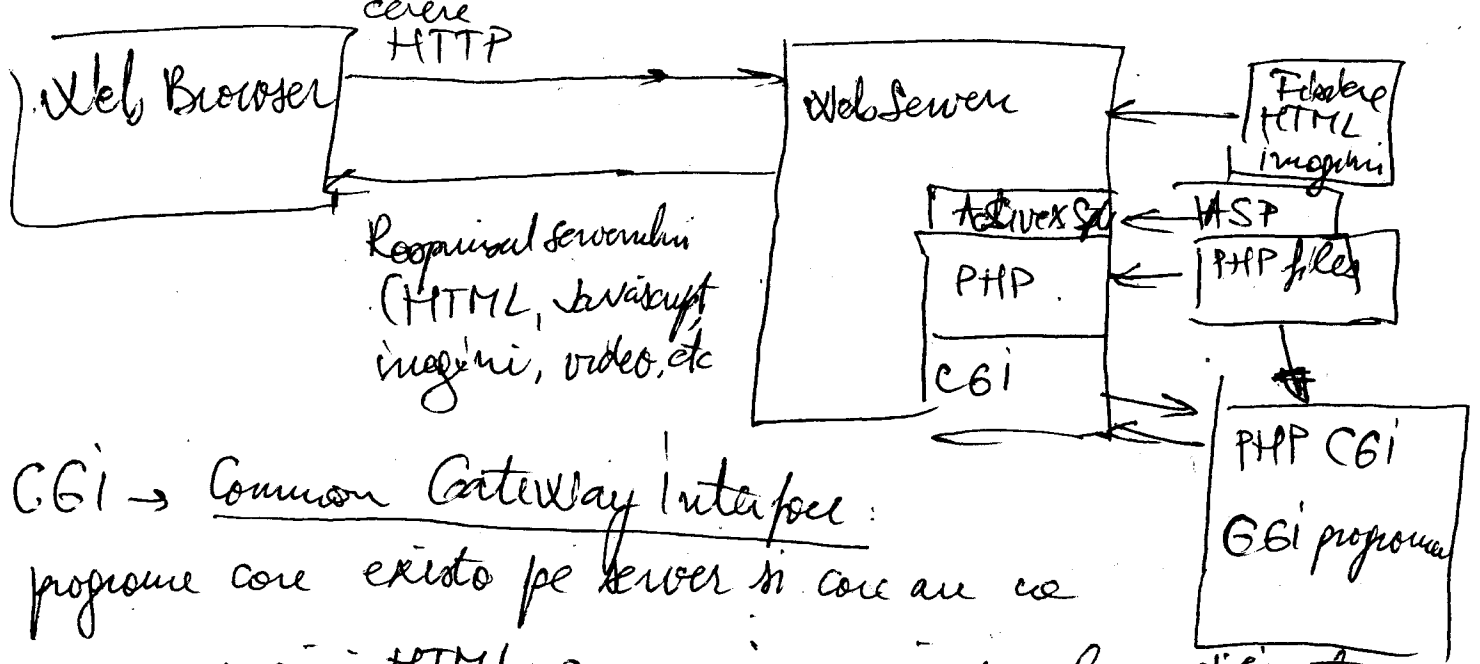 cerere
HTTP
Web Browser
Web Server
Fisiere
HTML
imagini
ASP
PHP
PHP files
CGI
Raspunsul serverului
(HTML, Javascript,
imagini, video, etc
PHP CGI
CGI programe
CGI → Common Gateway Interface:
programe care exista pe server si care au ca
HTML